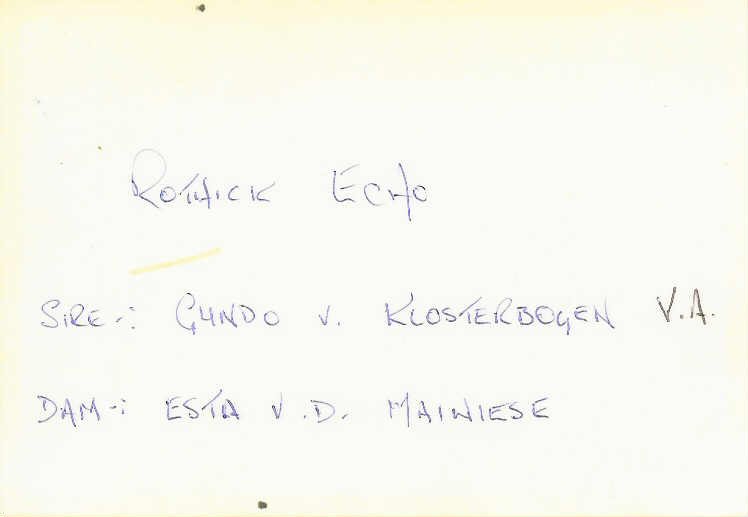 ROTHICK ECHO
SIRE-: GUNDO V. KLOSTERBOGEN V.A.
DAM-: ESTA V.D. MAINIESE